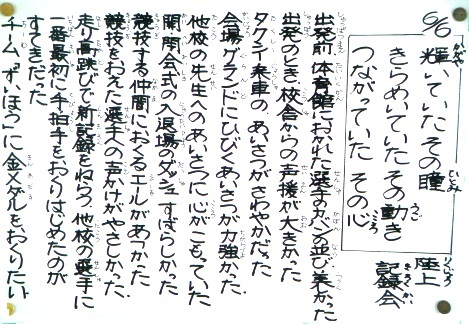 6/6
輝いていた その瞳
きらめいていた その動き
つながっていた その心
陸上
記録会
出発前、体育館におかれた選手のカバンの並び、美しかった
出発のとき、校舎からの声援が大きかった
タクシー乗車の、あいさつがさわやかだった
会場、グランドにひびくあいさつが力強かった。
他校の先生へのあいさつに心がこもっていた
開閉会式の入退場のダッシュすばらしかった
競技する仲間におくるエールがあつかった
競技をおえた選手への声かけがやさしかった。
走り高跳びで新記録をねらう他校の選手に
一番最初に手拍手をおくりはじめたのが
すてきだった
チーム「ずいほう」に金メダルをおくりたい